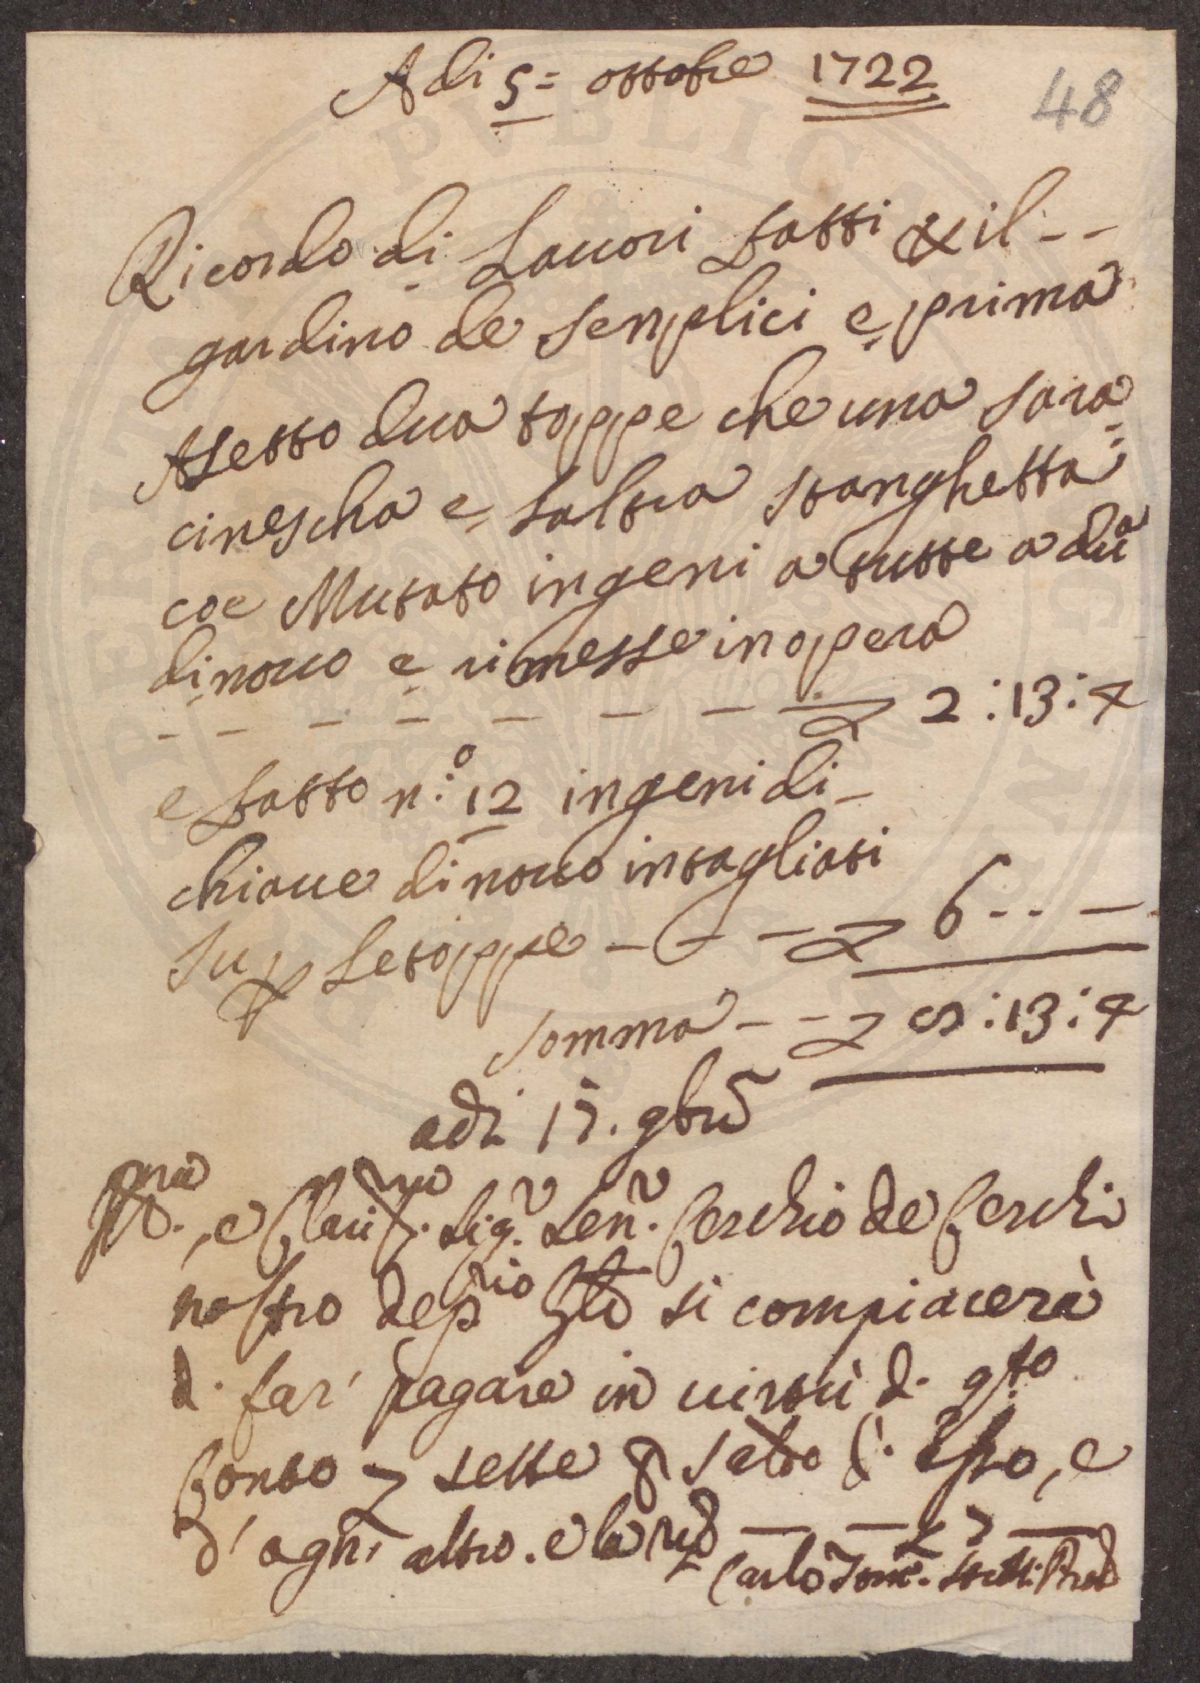 Adi 5= ottobre 1722
48
Ricordo di Lauori fatti p il - -
gardino de Senplici e, prima
Asetto dua toppe che una sara=
cinescha e, laltra stanghetta
coe Mutato ingeni a tutte a dua
di nouo e rimesse in opera
- - - - - - - - 2 : 13 : 4
e fatto n.º 12 ingeni di -
chiaue di nouo intagliati
su p le toppe - - - - 6 - - -
somma - - 8 : 13 : 4
adi 17. 9bre
e Clariss.mo Sig.r Sen.r Cerchio de Cerchi
nostro dep.rio si compiacerà
d. far' pagare in uirtù d. q.sto
Conto sette p saldo d'. esso, e
d' ogni altro. e la - - 7 -
Carlo